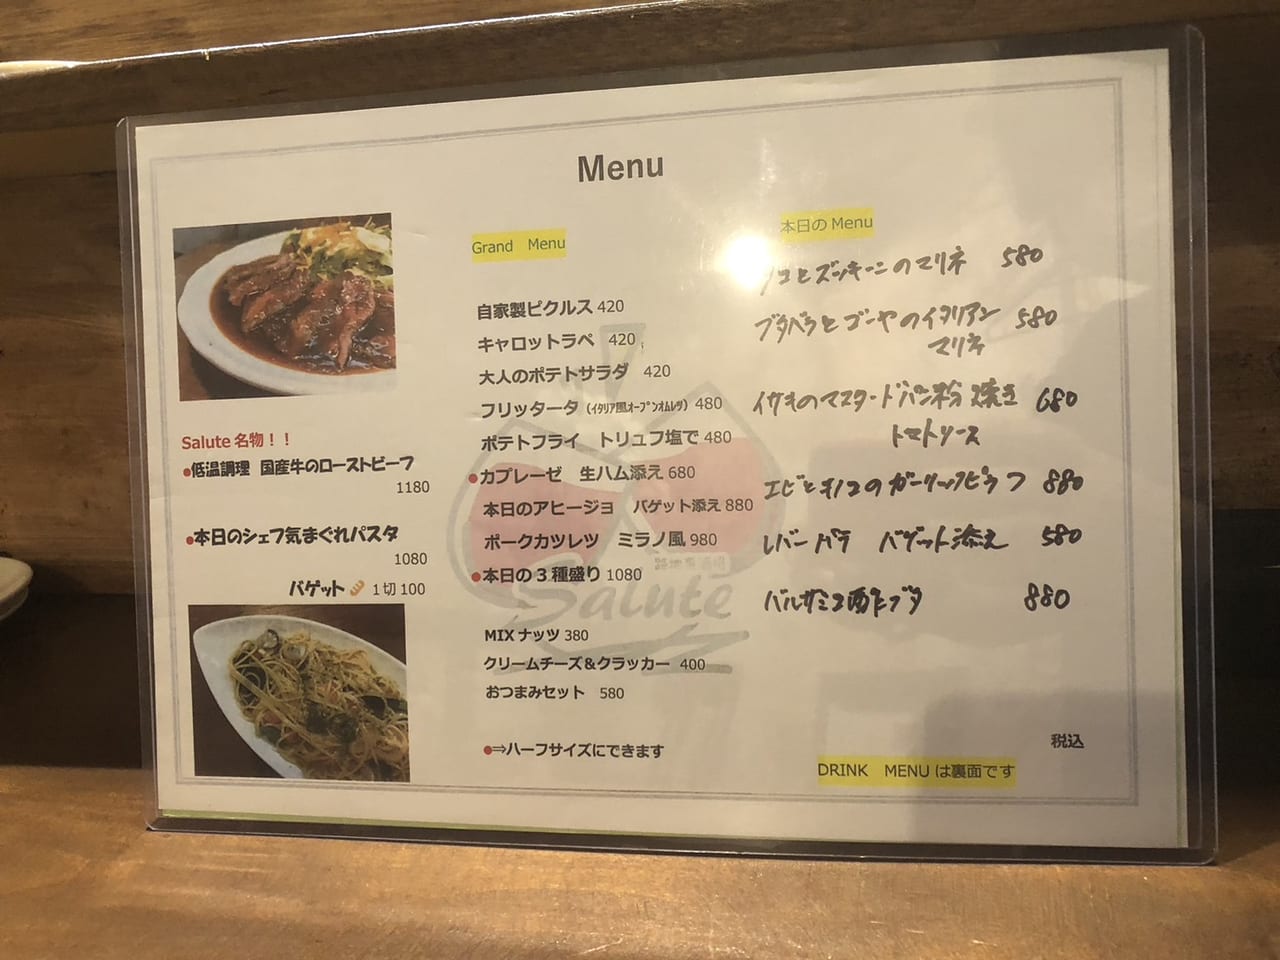 Menu
Salute 名物！！
●低温調理 国産牛のローストビーフ
1180
●本日のシェフ気まぐれパスタ
1080
バゲット 1切 100
Grand Menu
自家製ピクルス 420
キャロットラペ 420
大人のポテトサラダ 420
フリッタータ（イタリア風オープンオムレツ）480
ポテトフライ トリュフ塩で 480
●カプレーゼ 生ハム添え 680
本日のアヒージョ バゲット添え 880
ポークカツレツ ミラノ風 980
●本日の3種盛り 1080
Salute
MIX ナッツ 380
クリームチーズ＆クラッカー 400
おつまみセット 580
●⇒ハーフサイズにできます
本日の Menu
コとズッキーニのマリネ 580
ブタバラとゴーヤのイタリアン 580
マリネ
イサキのマスタードパン粉焼き 680
トマトソース
エビとキノコのガーリックピラフ 880
レバーパテ バゲット添え 580
バルサミコ酢ブタ 880
税込
DRINK MENU は裏面です